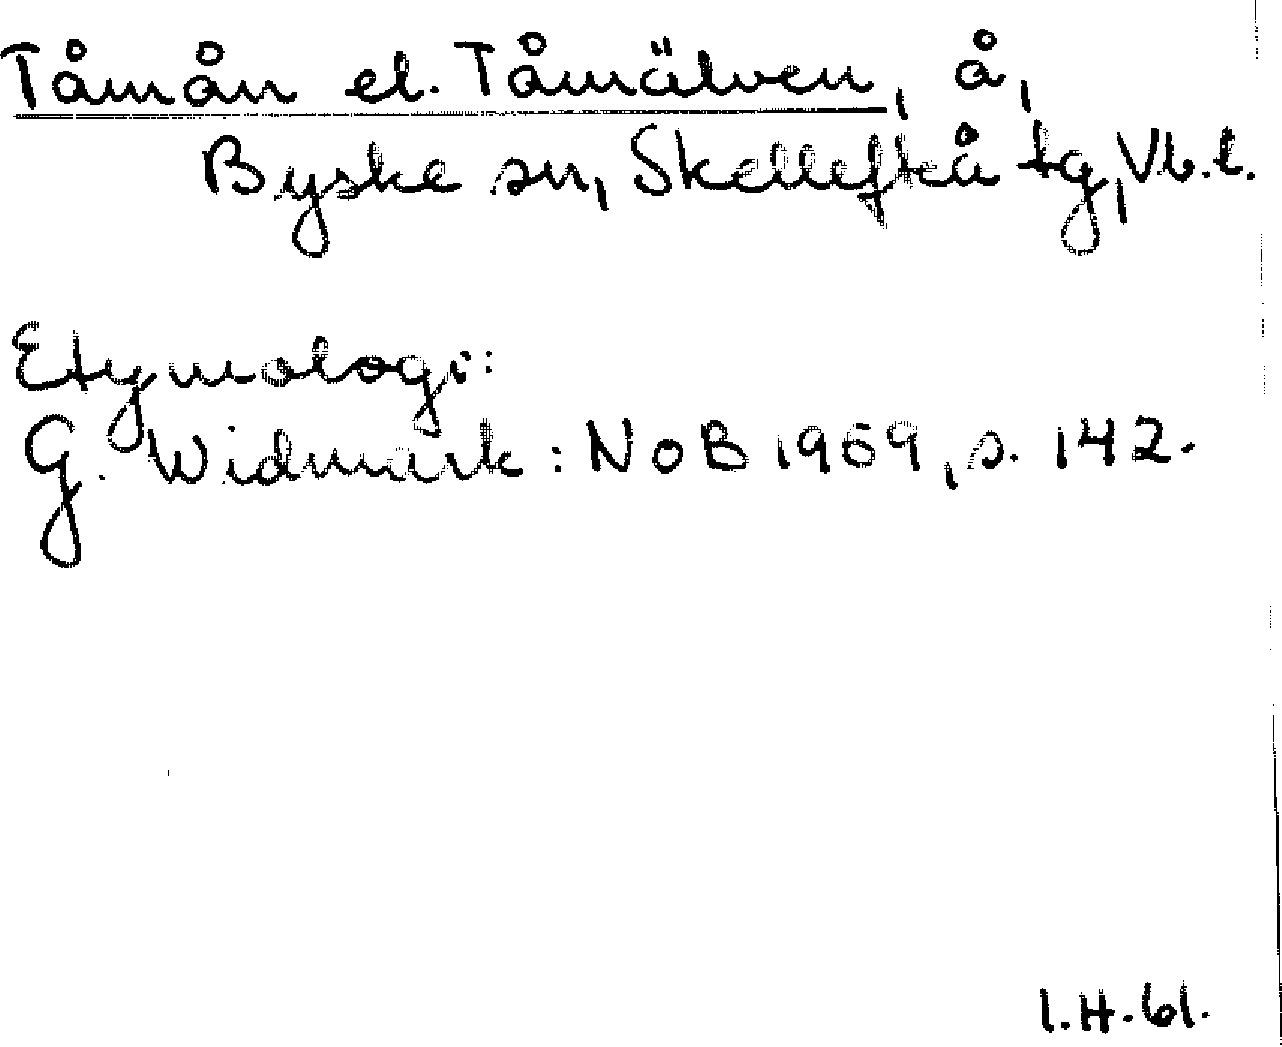 Tåmån el. Tåmälven, å,
Byske sn, Skellefteå tg, Vb.l.
Etymologi:
G. Widmark: NoB 1959, s. 142.
I.H.61.